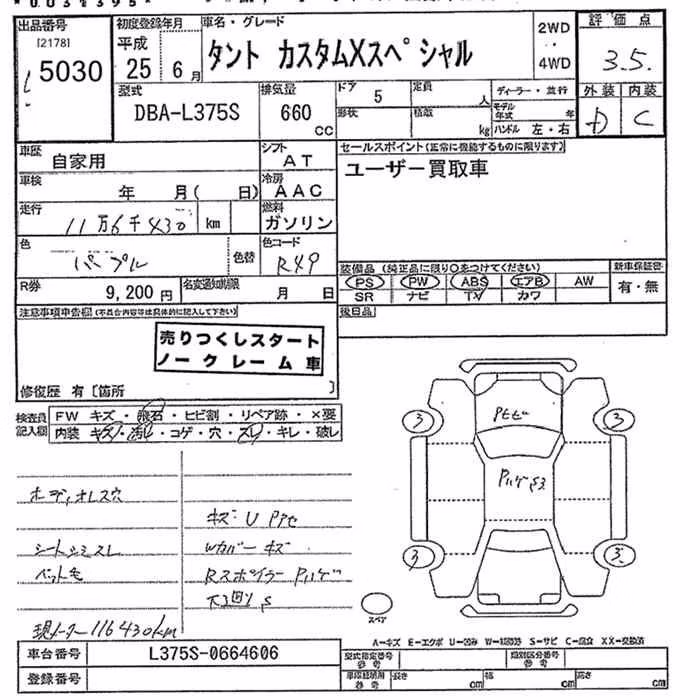 出品番号 初度登録年月 車名・グレード 2WD 評価点
[2178] 平成 タント カスタムXスペシャル ・・ 3.5.
5030 25 6月 4WD
型式 排気量 ドア 5 定員 人 ディーラー・並行 外装 内装
DBA-L375S 660 cc 形状 積載 kg モデル年式 年 D C
ハンドル 左・右
車歴 自家用 シフト AT セールスポイント(正常に機能するものに限ります)
車検 年 月( 日) 冷房 AAC ユーザー買取車
走行 11万6千430 km 燃料 ガソリン
色 パープル 色替 色コード R49
装備品(純正品に限り○をつけてください) 新車保証書
R券 9,200円 名変通知期限 月 日 PS PW ABS エアB AW 有・無
SR ナビ TV カワ
注意事項申告欄(不具合内容等は具体的に記入して下さい) 後日品
売りつくしスタート
ノークレーム車
修復歴 有〔箇所 〕
検査員記入欄 FW キズ・飛石・ヒビ割・リペア跡・×要
内装 キズ・汚れ・コゲ・穴・スレ・キレ・破レ
ボディオレス穴
キズ・U
シートシミスレ Wカバー キズ
ペット毛 Rスポイラー Pハゲ
下廻りS
現メーター116430km
Pトビ
Pハゲ
3 3
3 3
スペア
A-キズ E-エクボ U-凹み W-補修跡 S-サビ C-腐食 XX-交換済
車台番号 L375S-0664606 型式指定番号 参考 類別区分番号 参考
登録番号 参考 長さ cm 幅 cm 高さ cm